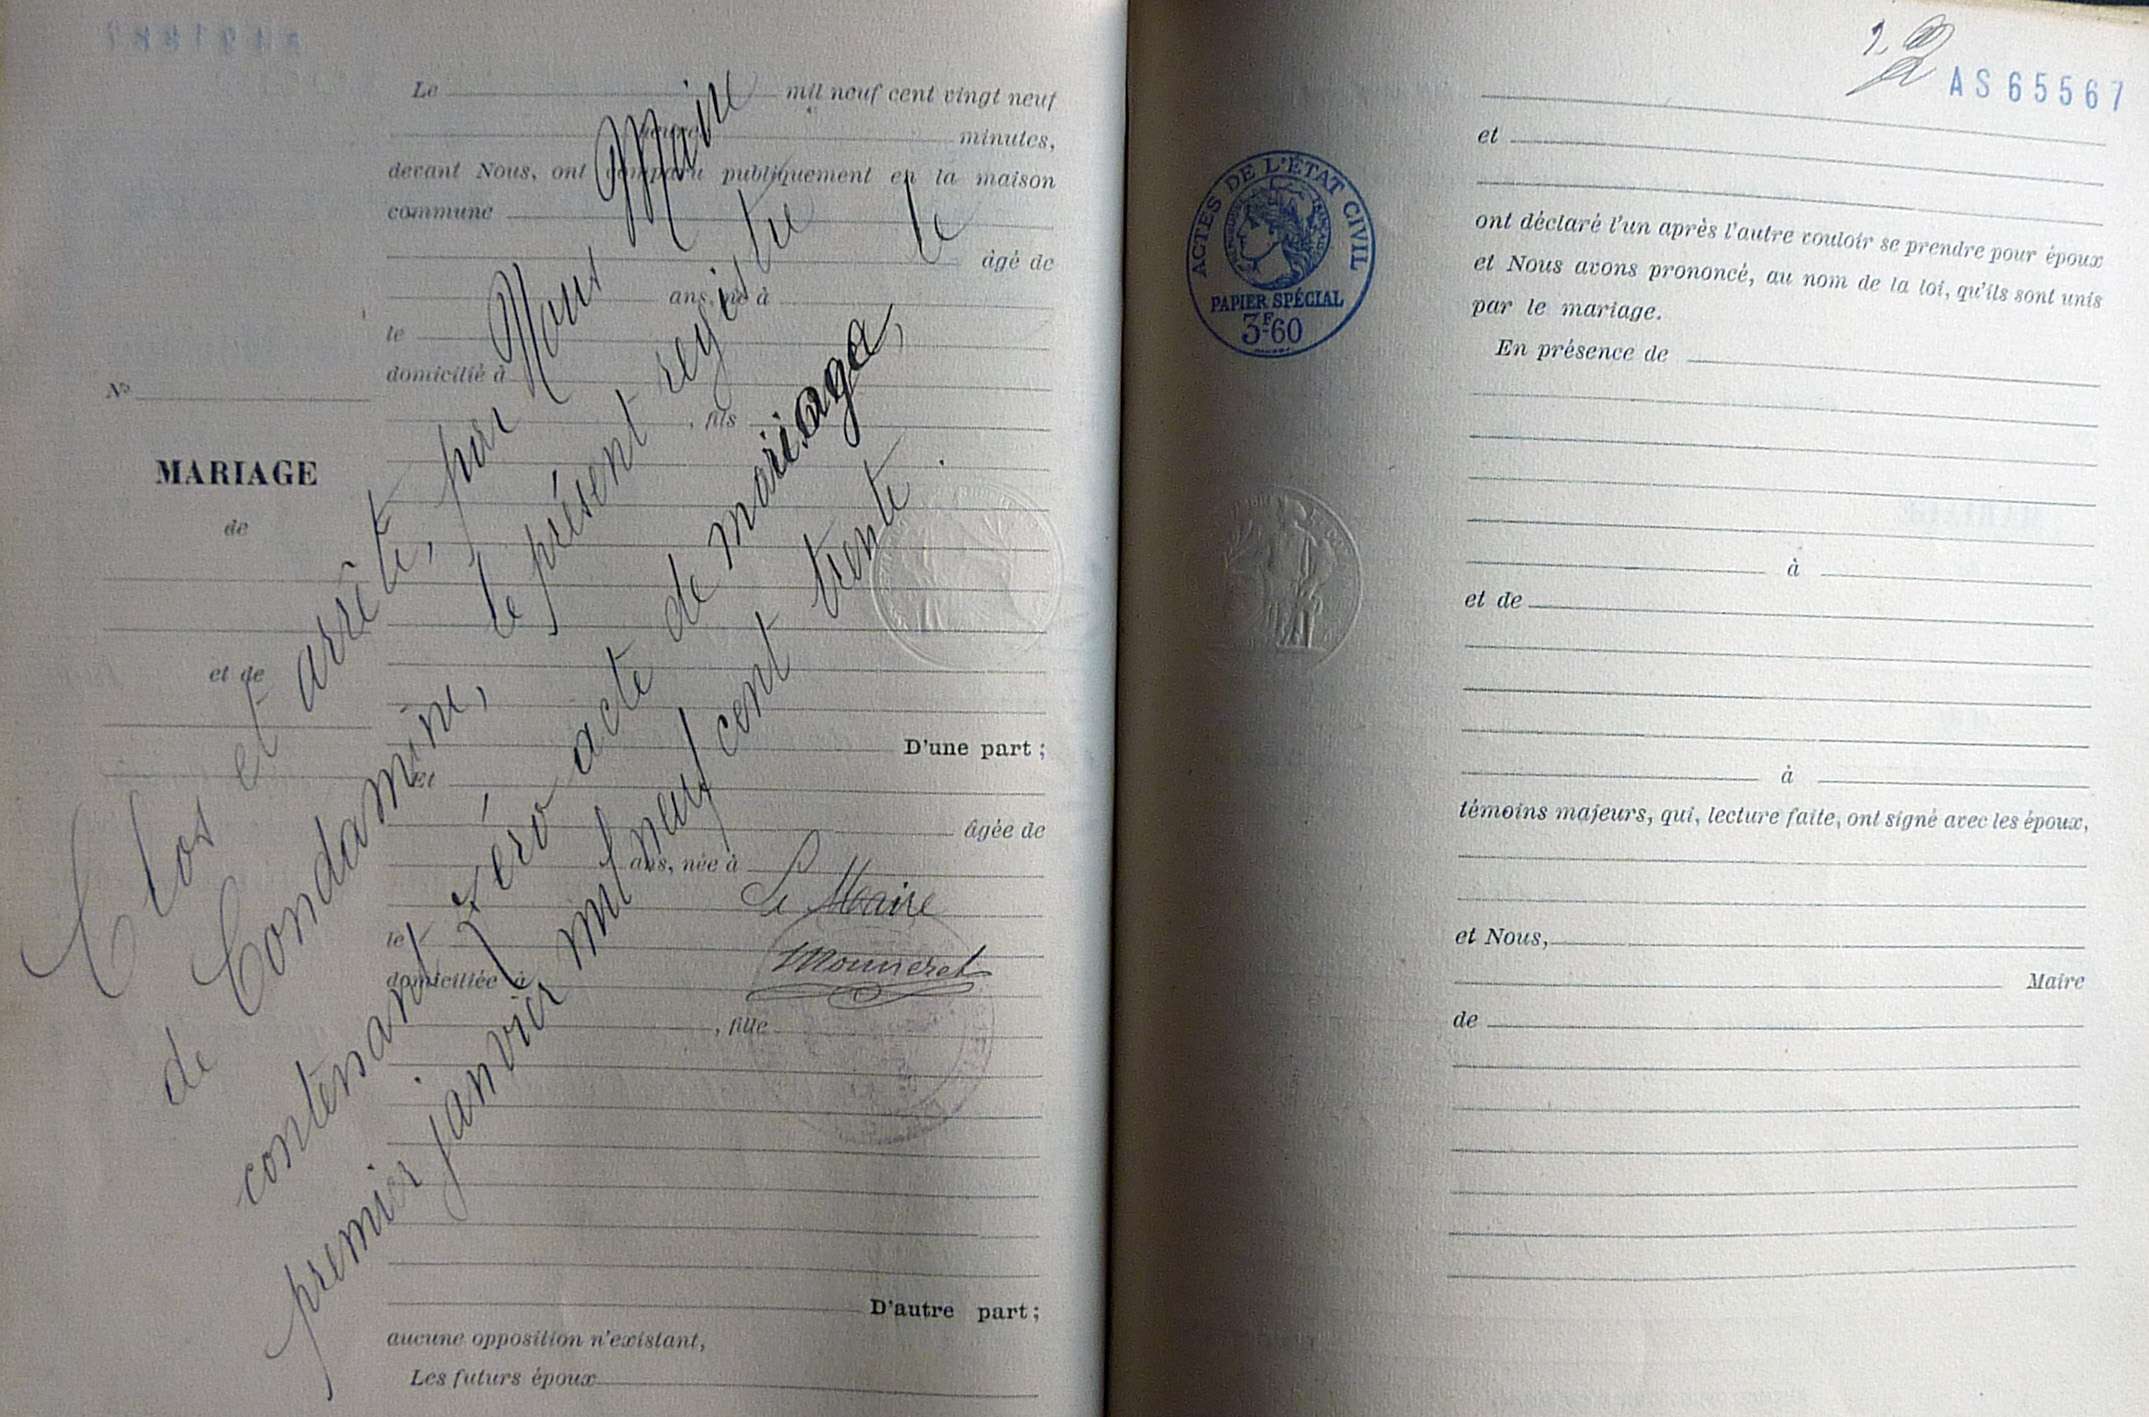 Le mil neuf cent vingt neuf
heures minutes,
devant Nous, ont comparu publiquement en la maison
commune
âgé de
ans, né à
le
domicilié à
, fils
D'une part ;
Et
âgée de
ans, née à
le
domiciliée à
, fille
D'autre part ;
aucune opposition n'existant,
Les futurs époux
No
MARIAGE
de
et de
Clos et arrêté, par Nous Maire
de Condamine, le présent registre
contenant zéro acte de mariage, le
premier janvier mil neuf cent trente.
Le Maire
Monneret
2
AS65567
ACTES DE L'ÉTAT CIVIL
PAPIER SPÉCIAL
3F60
et
ont déclaré l'un après l'autre vouloir se prendre pour époux
et Nous avons prononcé, au nom de la loi, qu'ils sont unis
par le mariage.
En présence de
à
et de
à
témoins majeurs, qui, lecture faite, ont signé avec les époux,
et Nous,
Maire
de